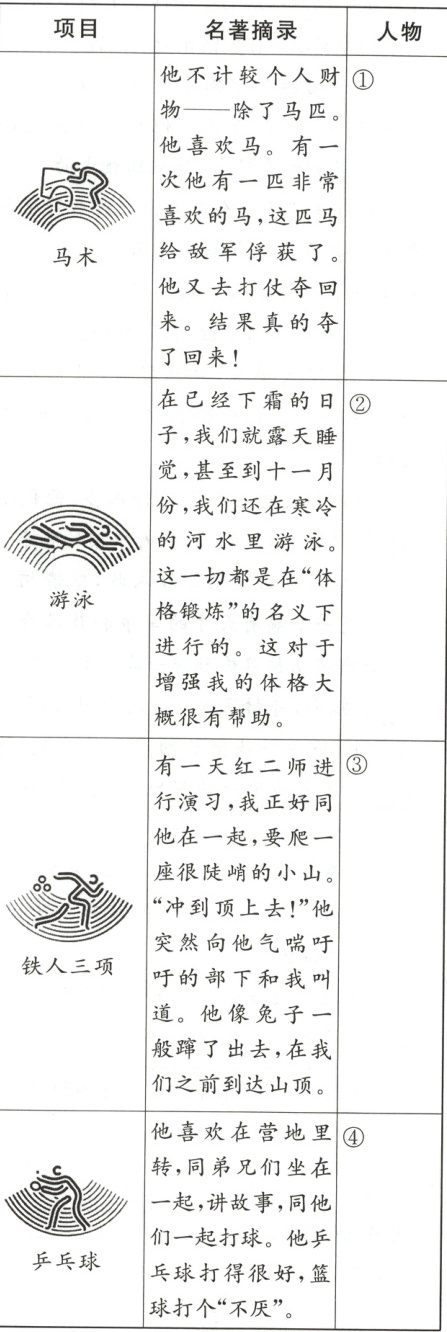 项目 名著摘录 人物
他不计较个人财 ①
物——除了马匹。
他喜欢马。有一
次他有一匹非常
喜欢的马,这匹马
给敌军俘获了。
他又去打仗夺回
来。结果真的夺
了回来!
马术
在已经下霜的日 ②
子,我们就露天睡
觉,甚至到十一月
份,我们还在寒冷
的河水里游泳。
这一切都是在“体
格锻炼”的名义下
进行的。这对于
增强我的体格大
概很有帮助。
游泳
有一天红二师进 ③
行演习,我正好同
他在一起,要爬一
座很陡峭的小山。
“冲到顶上去!”他
突然向他气喘吁
吁的部下和我叫
道。他像兔子一
般蹿了出去,在我
们之前到达山顶。
铁人三项
他喜欢在营地里 ④
转,同弟兄们坐在
一起,讲故事,同他
们一起打球。他乒
乓球打得很好,篮
球打个“不厌”。
乒乓球